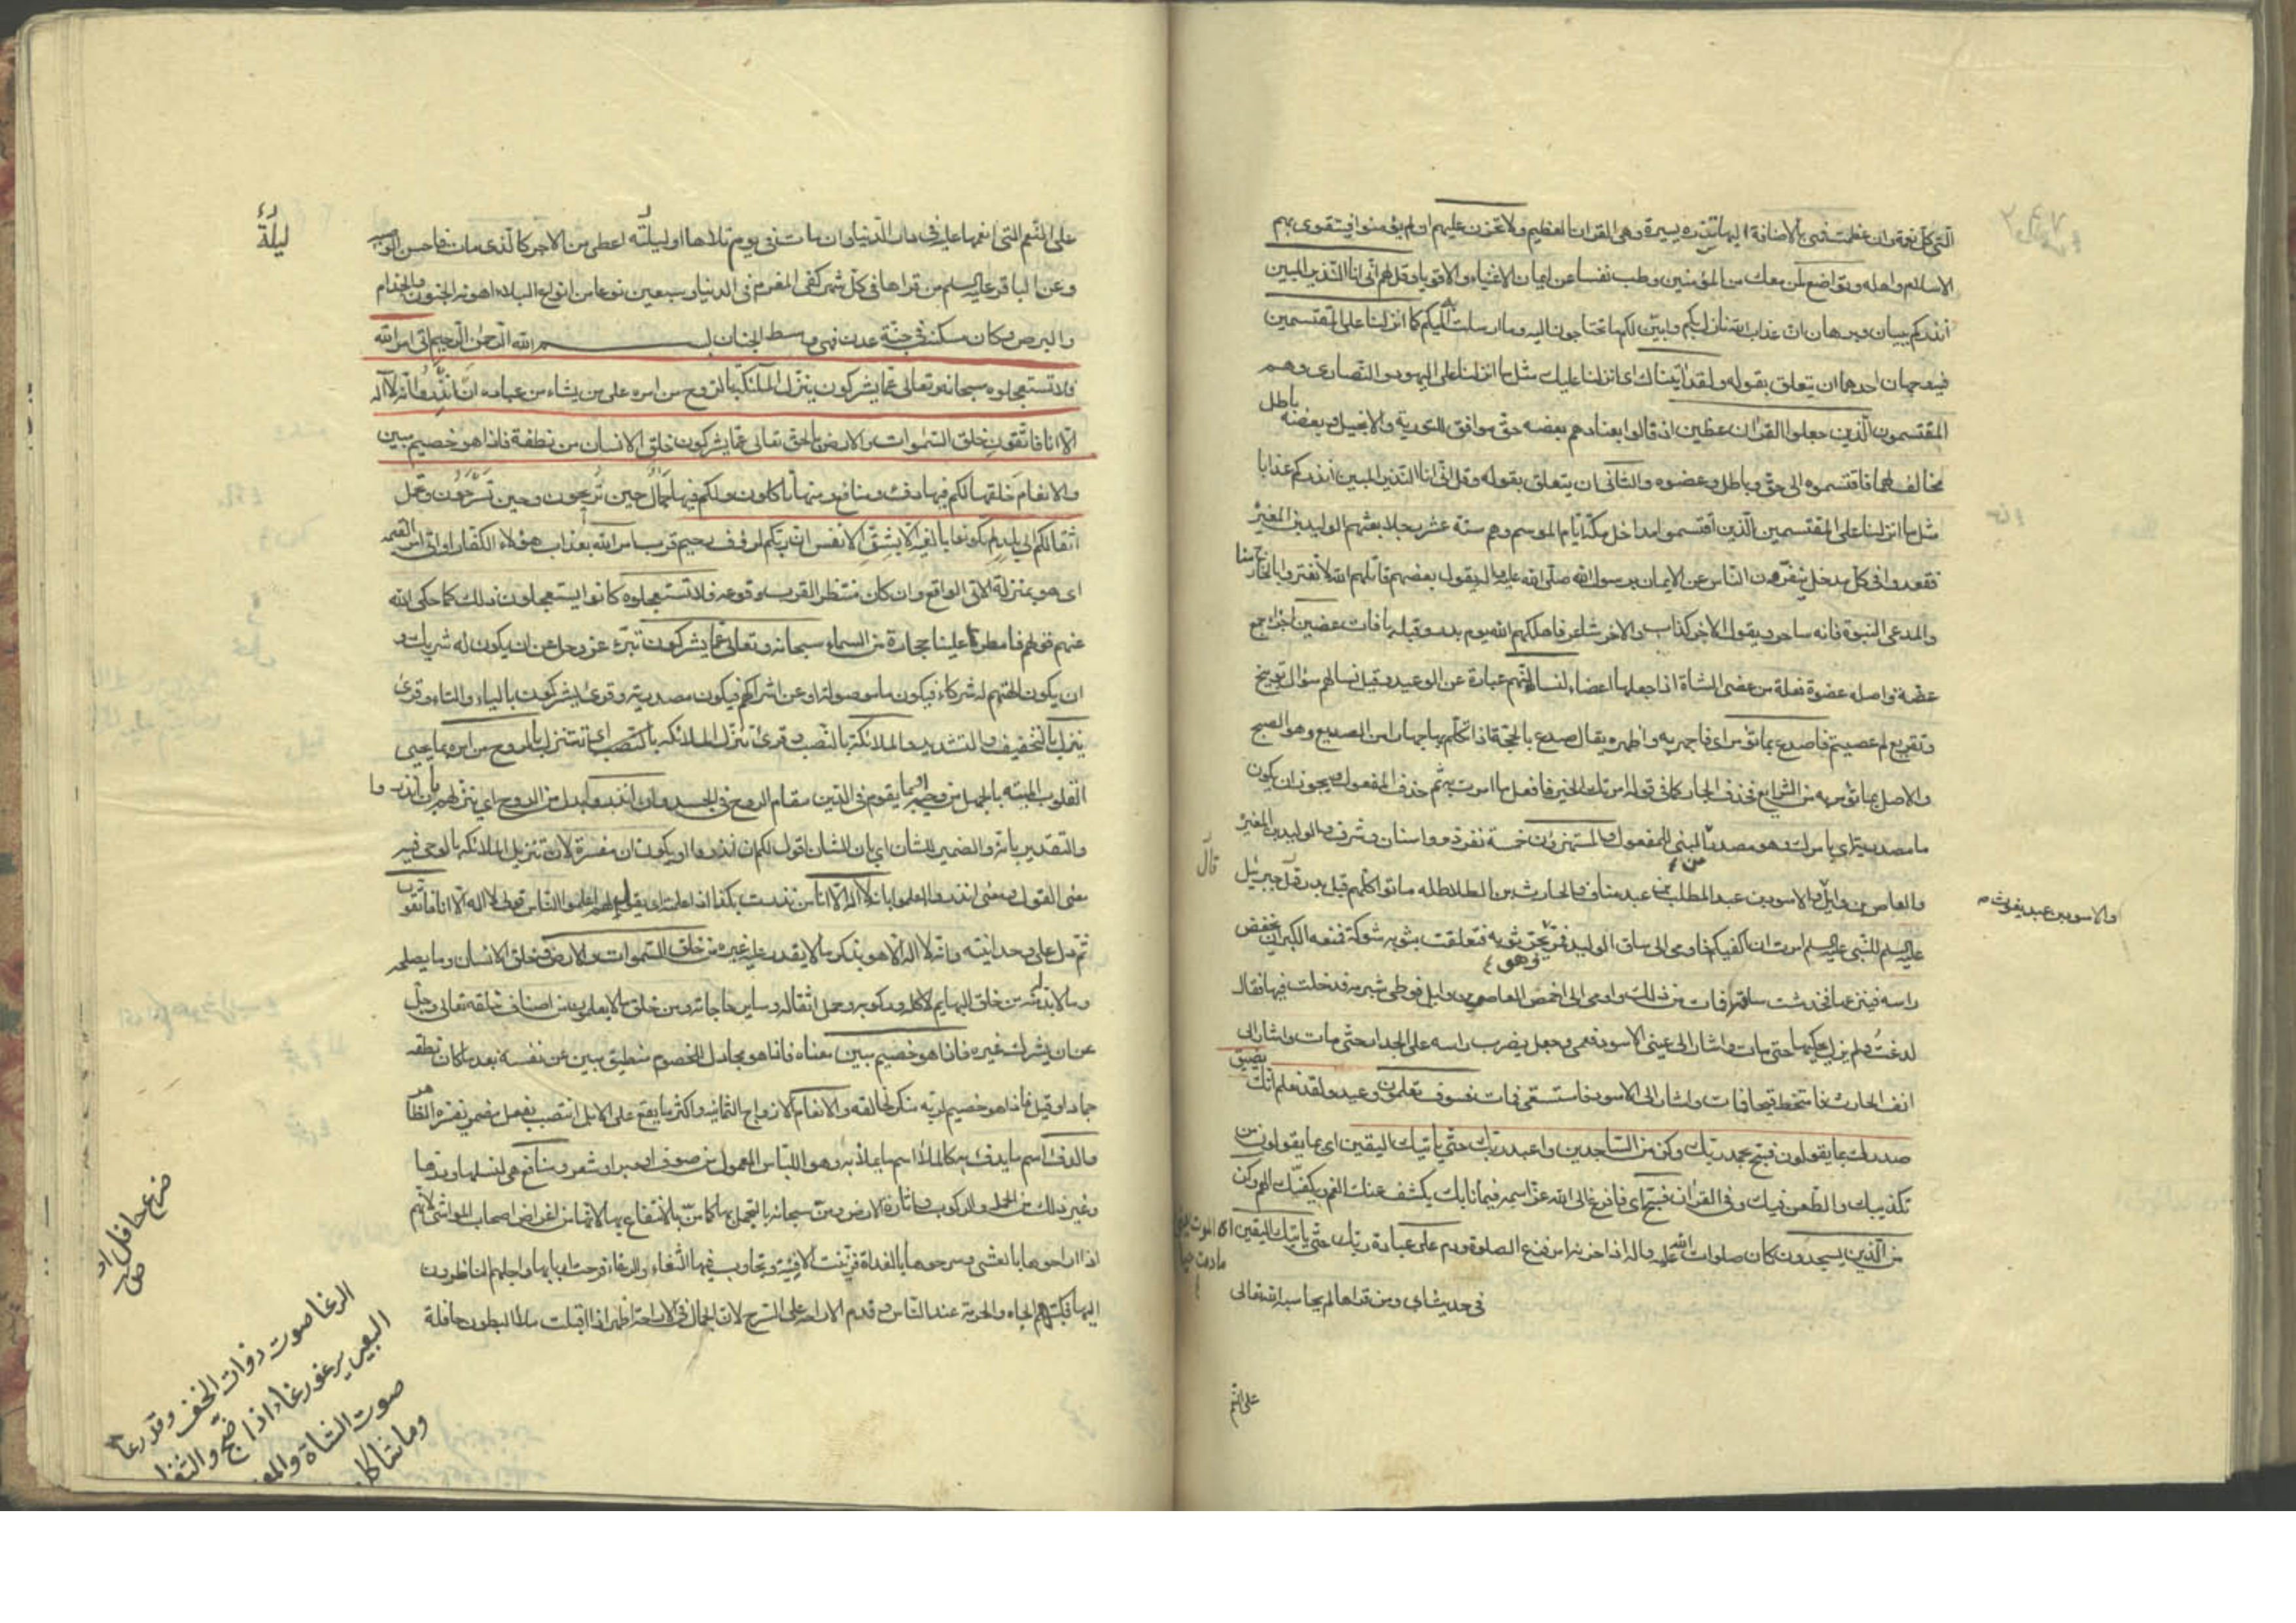 التي كل نعمة وان عظمت فهي بالاضافة اليها نزرة يسيرة وهي القران العظيم ولا تحزن عليهم ان لم يؤمنوا فيتقوى بهم
الاسلام واهله وتواضع لمن معك من المؤمنين وطب نفسا عن ايمان الاغنياء والاقوياء وقل لهم اني انا النذير المبين
انذركم ببيان وبرهان ان عذاب الله نازل بكم وابين لكم ما تحتاجون اليه وما ارسلت به اليكم كما انزلنا على المقتسمين
فيه وجهان احدهما ان يتعلق بقوله ولقد اتيناك اى انزلنا عليك مثل ما انزلنا على اليهود والنصارى وهم
المقتسمون الذين جعلوا القران عضين اذ قالوا بعنادهم بعضه حق موافق للتورية والانجيل وبعضه باطل
مخالف لهما فاقتسموه الى حق وباطل وعضوه والثانى ان يتعلق بقوله وقل انى انا النذير المبين انذركم عذابا
مثل ما انزلنا على المقتسمين الذين اقتسموا مداخل مكة ايام الموسم وهم ستة عشر رجلا بعثهم الوليد بن المغيرة
فقعدوا فى كل مدخل ينفرون الناس عن الايمان برسول الله صلى الله عليه واله يقول بعضهم قاتلهم الله لا تغتروا بالخارج منا
والمدعى النبوة فانه ساحر ويقول الاخر كذاب والاخر شاعر فاهلكهم الله يوم بدر وقبله بافات عضين اجزاء جمع
عضة واصله عضوة فعلة من عضى الشاة اذا جعلها اعضاء لنسالنهم عبارة عن الوعيد وقيل نسالهم سؤال توبيخ
وتقريع لم عصيتم فاصدع بما تؤمر اى فاجهر به واظهره يقال صدع بالحجة اذا تكلم بها جهارا من الصديع وهو الصبح
والاصل بما تؤمر به من الشرايع فحذف الجار كما فى قوله امرتك الخير فافعل ما امرت به ثم حذف المفعول ويجوز ان يكون
ما مصدرية اى بامرك وهو مصدر من المبنى للمفعول والمستهزؤن خمسة نفر ذووا اسنان وشرف الوليد بن المغيرة
والعاص بن وايل والاسود بن عبد المطلب بن عبد مناف والحارث بن الطلاطله ماتوا كلهم قبل بدر قال جبرئيل
والاسود بن عبد يغوث
قال
عليه السلم للنبى عليه السلم امرت ان اكفيكهم فاومى الى ساق الوليد فمر بنبال يجر ثوبه فتعلقت بثوبه شوكة فمنعه الكبر ان يخفض
راسه فينزعها فخدشت ساقه فمات من ذلك واومى الى اخمص العاص بن وايل فوطى شبرمة فدخلت فيها فقال
لدغت ولم يزل يحكها حتى مات واشار الى عينى الاسود فعمى وجعل يضرب راسه على الجدار حتى مات واشار الى
انف الحارث فامتخط قيحا فمات واشار الى الاسود فاستسقى فمات فسوف يعلمون وعيد ولقد نعلم انك يضيق
صدرك بما يقولون فسبح بحمد ربك وكن من الساجدين واعبد ربك حتى ياتيك اليقين اى بما يقولون من
تكذيبك والطعن فيك وفى القران فسبح اى فافزع الى الله عز اسمه فيما نابك يكشف عنك الغم ويكفيك المهم وكن
من الذين يسجدون كان صلوات الله عليه واله اذا حزنه امر فزع الى الصلوة ودم على عبادة ربك حتى ياتيك اليقين اى الموت
ما دمت حيا
فى حديث ابى ومن قراها لم يحاسبه الله تعالى
على النعم
على النعم التى انعمها عليه فى دار الدنيا وان مات فى يوم تلاها او ليلته اعطى من الاجر كالذى مات فاحسن الوصية
ليلة
وعن الباقر عليه السلم من قراها فى كل شهر كفى المغرم فى الدنيا وسبعين نوعا من انواع البلاء اهونه الجنون والجذام
والبرص وكان مسكنه فى جنة عدن فهى وسط الجنان بسم الله الرحمن الرحيم اتى امر الله
فلا تستعجلوه سبحانه وتعالى عما يشركون ينزل الملئكة بالروح من امره على من يشاء من عباده ان انذروا انه لا اله
الا انا فاتقون خلق السموات والارض بالحق تعالى عما يشركون خلق الانسان من نطفة فاذا هو خصيم مبين
والانعام خلقها لكم فيها دفء ومنافع ومنها تاكلون ولكم فيها جمال حين تريحون وحين تسرحون وتحمل
اثقالكم الى بلد لم تكونوا بالغيه الا بشق الانفس ان ربكم لرؤف رحيم قرب امر الله بعذاب هؤلاء الكفار او اتى امر القيمة
اى هو بمنزلة الاتى الواقع وان كان منتظرا لقرب وقوعه فلا تستعجلوه كانوا يستعجلون ذلك كما حكى الله
عنهم قولهم فامطر علينا حجارة من السماء سبحانه وتعالى عما يشركون تبرء عز وجل عن ان يكون له شريك و
ان يكون الهتهم له شركاء فيكون ما موصولة او عن اشراكهم فيكون مصدرية وقرئ يشركون بالياء والتاء وقرئ
ينزل بالتخفيف والتشديد والملائكة بالنصب وقرئ تنزل الملائكه اى تتنزل بالروح من امره بما يحيى
القلوب الميته بالجهل من وحيه او بما يقوم فى الدين مقام الروح فى الجسد وان انذروا بدل من الروح اى ينزلهم بان انذروا
والتقدير بانه والضمير للشان اى بان الشان اقول لكم ان انذروا او يكون ان مفسرة لان تنزيل الملائكه بالوحى فيه
معنى القول ومعنى انذروا اعلموا بانه لا اله الا انا من نذرت بكذا اذا علمته اى يقول لهم اعلموا الناس قولى لا اله الا انا فاتقون
ثم دل على وحدانيته وانه لا اله الا هو بذكر ما لا يقدر عليه غيره من خلق السموات والارض وخلق الانسان وما يصلحه
وما لا بد له منه من خلق البهايم لاكله وركوبه وحمل اثقاله وساير حاجاته ومن خلق ما لا يعلمون من اصناف خلقه تعالى وجل
عن ان يشرك به غيره فاذا هو خصيم مبين معناه فاذا هو مجادل للخصوم منطيق مبين عن نفسه بعد ما كان نطفة
جمادا وقيل فاذا هو خصيم لربه منكر لخالقه والانعام الازواج الثمانية واكثر ما يقع على الابل انتصب بفعل مضمر يفسره الظاهر
والدفء اسم ما يدفأ به كالملأ اسم ما يملأ به وهو اللباس المعمول من صوف او وبر او شعر ومنافع هى نسلها ودرها
وغير ذلك من الحمل والركوب واثارة الارض ومن سبحانه بالتجمل بها كما من بالانتفاع بها لانها من اغراض اصحاب المواشى لانهم
اذا اراحوها بالعشى وسرحوها بالغداة تزينت الافنية وتجاوب فيها الثغاء والرغاء فرحت اربابها واجلهم الناظرون
اليها فكسبتهم الجاه والحرمة عند الناس وقدم الاراحة على التسريح لان الجمال فى الاراحة اظهر اذا اقبلت ملأ البطون حافلة
ضرع حافل اى
الرغا صوت ذوات الخف وقد رغا
البعير يرغو رغاء اذا ضج والثغا
صوت الشاة والمعز
وما شاكل